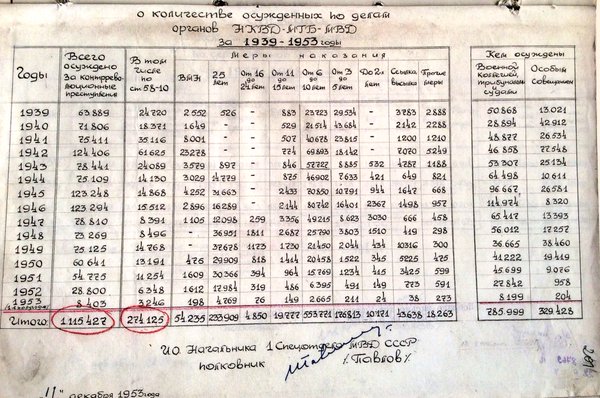 о количестве осужденных по делам
органов НКВД-МГБ-МВД
за 1939-1953 годы
Годы Всего осуждено за контрреволюционные преступления В том числе по ст 58-10 Меры наказания Кем осуждены
ВМН 25 лет От 16 до 24 лет От 11 до 15 лет От 6 до 10 лет От 3 до 5 лет До 2х лет Ссылка высылка Прочие меры Военной коллегией, трибуналами судами Особым совещанием
1939 63.889 24.720 2552 526 - 883 23723 29534 - 3783 2888 50.868 13.021
1940 71.806 18.371 1649 - - 529 21514 43684 - 2142 2288 28.894 42.912
1941 75.411 35.116 8001 - - 507 40678 23815 - 1200 1210 48.877 26.534
1942 124.406 61.625 23278 - - 774 69893 18142 - 7070 5249 46.858 77.548
1943 78.441 24.089 3579 897 - 846 57727 8885 532 4787 1188 53.307 25.134
1944 75.109 14.130 3029 14.779 - 875 46902 7633 421 649 821 64.498 10.611
1945 123.248 14.868 4252 31.663 - 2433 70.850 10.791 944 1647 668 96.667 26.581
1946 123.294 15.512 2896 16.289 - 2144 80742 16401 2367 1498 957 114.974 8.320
1947 78.810 8.391 1105 12.098 259 3356 49215 8623 3030 666 458 65.417 13.393
1948 73.269 8.496 - 36.951 1811 2687 25.790 3803 1510 419 298 56.012 17.257
1949 75.125 14.768 - 37678 1173 1730 21.450 2044 434 10316 300 36.665 38.460
1950 60.641 13.191 475 29.909 818 1414 20.458 1522 345 5225 475 41.222 19.419
1951 54.775 11.254 1609 30.366 394 964 15.769 1234 415 3425 599 45.699 9.076
1952 28.800 6.348 1612 17.984 319 486 6.395 491 149 773 591 27.842 958
1953 8.403 3.246 198 4.769 76 149 2.665 211 24 38 273 8.199 204
Итого 1.115.427 274.125 54.235 233909 4.850 19.777 553.721 176813 10.171 43638 18.263 785.999 329.428
И.О. Начальника 1 Спецотдела МВД СССР
полковник /Павлов/
"11" декабря 1953 года